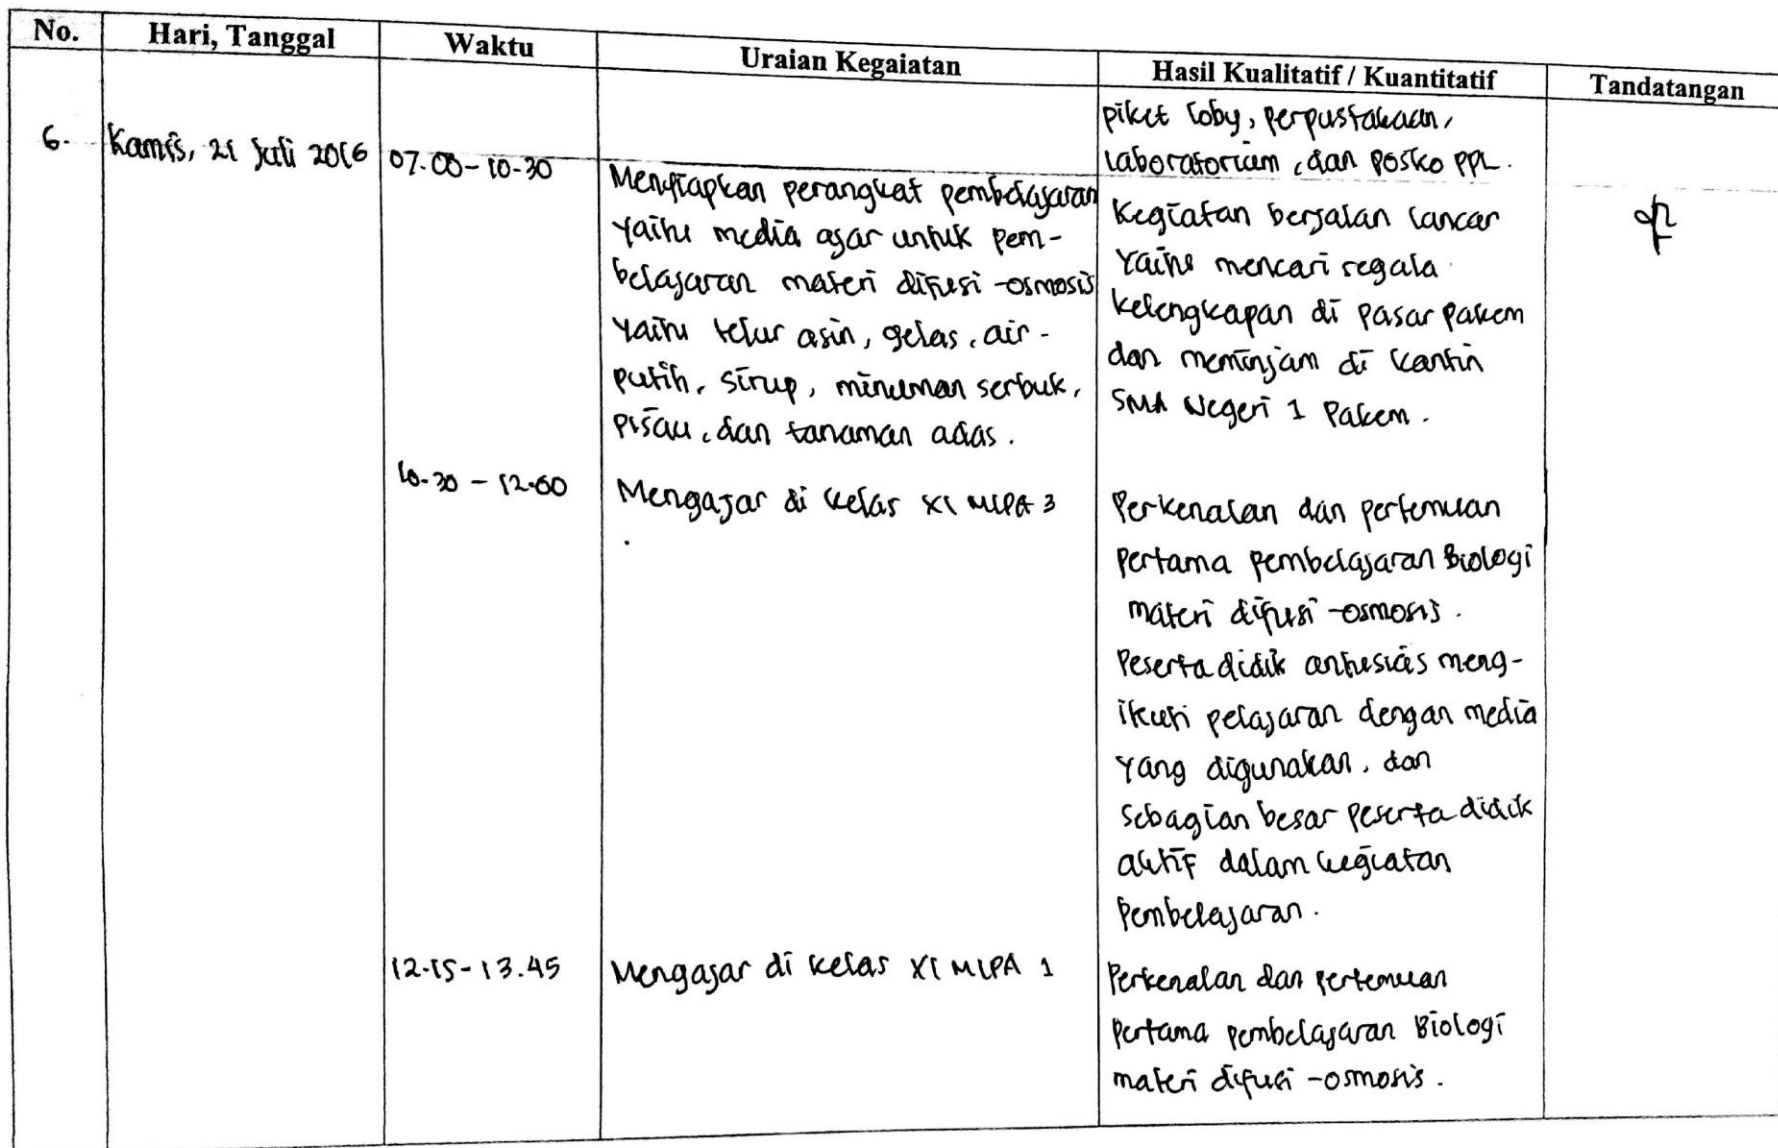 No. Hari, Tanggal Waktu Uraian Kegaiatan Hasil Kualitatif / Kuantitatif Tandatangan
piket loby, perpustakaan,
laboratorium, dan posko PPL.
6. Kamis, 21 Juli 2016 07.00-10.30
Menyiapkan perangkat pembelajaran
yaitu media ajar untuk pem-
belajaran materi difusi-osmosis
yaitu telur asin, gelas, air-
putih, sirup, minuman serbuk,
pisau, dan tanaman adas.
Kegiatan berjalan lancar
yaitu mencari segala
kelengkapan di pasar pakem
dan meminjam di kantin
SMA Negeri 1 Pakem.
10.30 - 12.00
Mengajar di kelas XI MIPA 3
Perkenalan dan pertemuan
pertama pembelajaran Biologi
materi difusi-osmosis.
Peserta didik antusias meng-
ikuti pelajaran dengan media
yang digunakan, dan
sebagian besar peserta didik
aktif dalam kegiatan
pembelajaran.
12.15-13.45
Mengajar di kelas XI MIPA 1
Perkenalan dan pertemuan
pertama pembelajaran Biologi
materi difusi-osmosis.